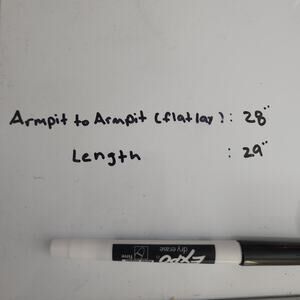 Armpit to Armpit (flatlay): 28"
Length : 29"
EXPO
dry erase
Fine